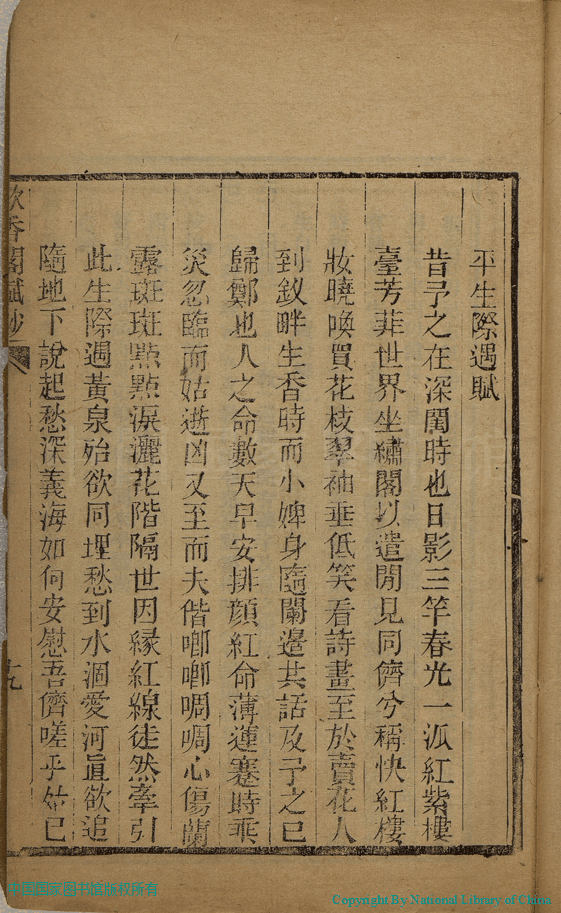 平生際遇賦
昔予之在深閨時也日影三竿春光一派紅紫樓
臺芳菲世界坐繡閣以遣閒見同儕兮稱快紅樓
妝曉喚買花枝翠袖垂低笑看詩畫至於賣花人
到釵畔生香時而小婢身隨闌邊共話及予之已
歸鄭也人之命數天早安排顏紅命薄運蹇時乖
災忽臨而姑逝凶又至而夫偕唧唧啁啁心傷蘭
露斑斑點點淚灑花階隔世因緣紅線徒然牽引
此生際遇黃泉殆欲同埋愁到水涸愛河直欲追
隨地下說起愁深義海如何安慰吾儕嗟乎姑已
飲香閣賦鈔
十九
中国国家图书馆版权所有
Copyright By National Library of China